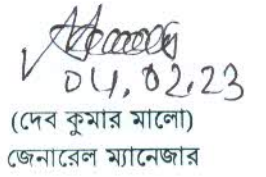 04.02.23
(দেব কুমার মালো)
জেনারেল ম্যানেজার